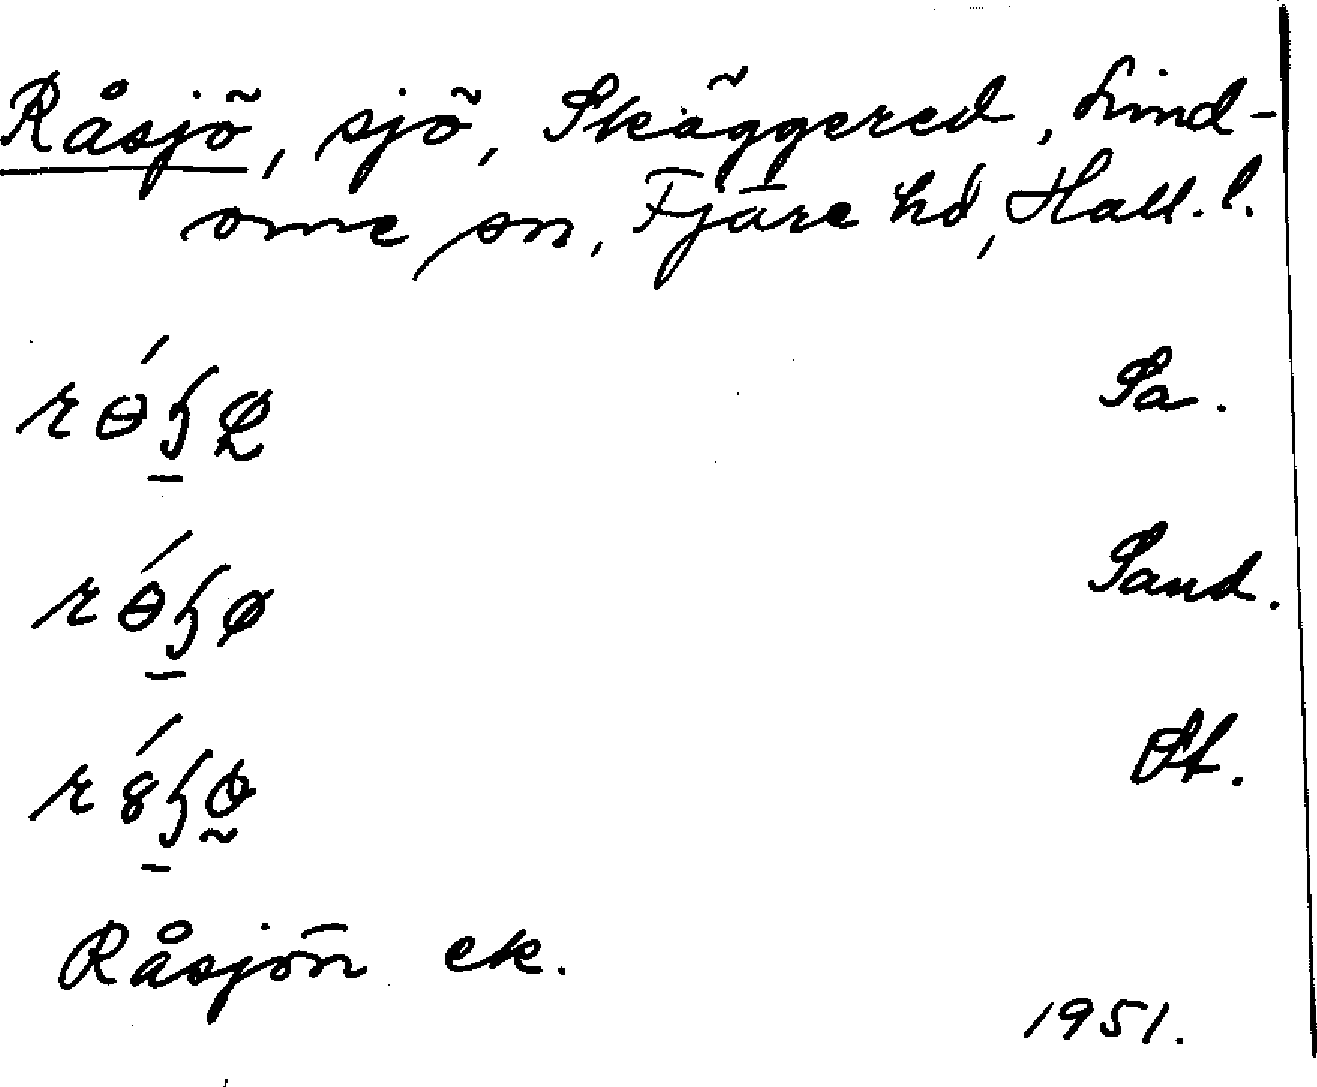 Råsjö, sjö, Skäggered, Lind-
ome sn, Fjäre hd, Hall. l.
Sa.
Sand.
St.
Råsjön ek.
1951.